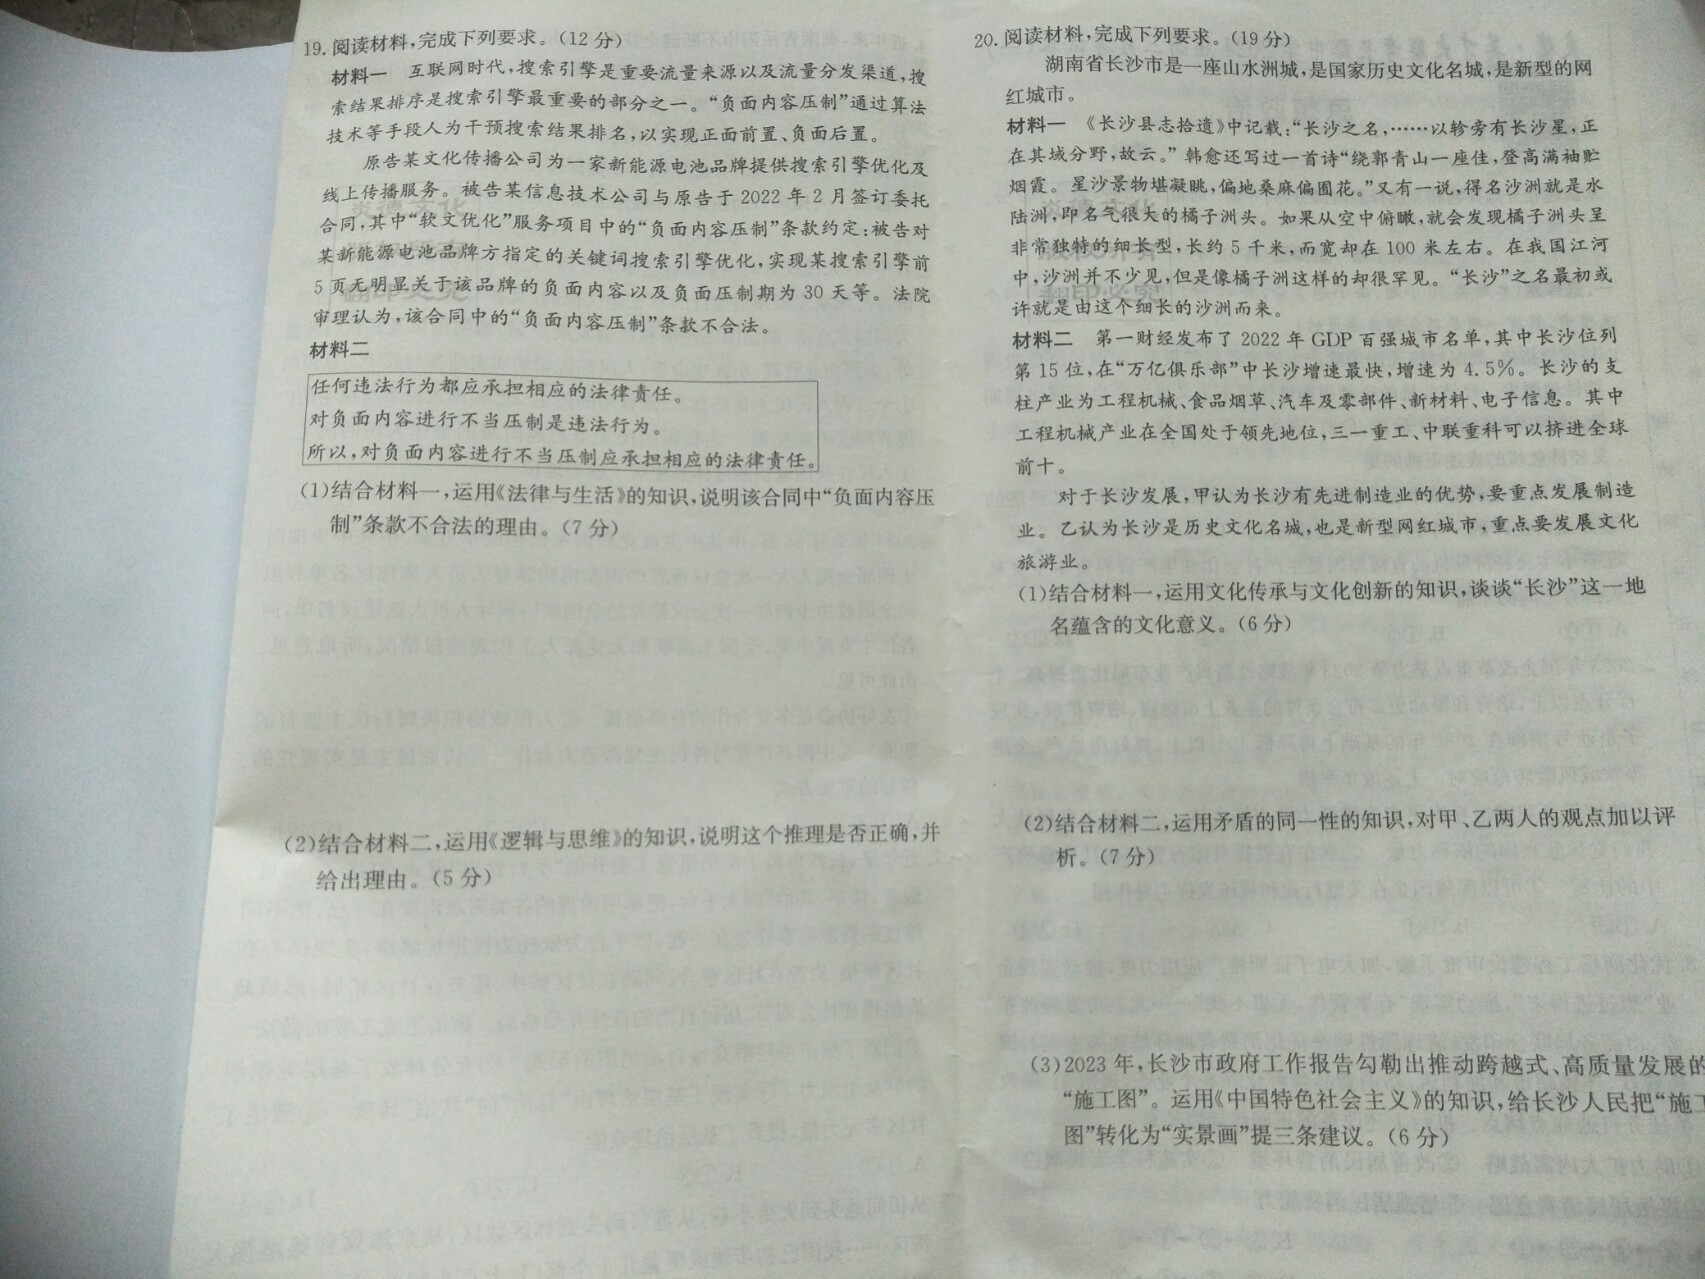 19. 阅读材料,完成下列要求。(12分)
材料一 互联网时代,搜索引擎是重要流量来源以及流量分发渠道,搜
索结果排序是搜索引擎最重要的部分之一。“负面内容压制”通过算法
技术等手段人为干预搜索结果排名,以实现正面前置、负面后置。
原告某文化传播公司为一家新能源电池品牌提供搜索引擎优化及
线上传播服务。被告某信息技术公司与原告于2022年2月签订委托
合同,其中“软文优化”服务项目中的“负面内容压制”条款约定:被告对
某新能源电池品牌方指定的关键词搜索引擎优化,实现某搜索引擎前
5页无明显关于该品牌的负面内容以及负面压制期为30天等。法院
审理认为,该合同中的“负面内容压制”条款不合法。
材料二
任何违法行为都应承担相应的法律责任。
对负面内容进行不当压制是违法行为。
所以,对负面内容进行不当压制应承担相应的法律责任。
(1)结合材料一,运用《法律与生活》的知识,说明该合同中“负面内容压
制”条款不合法的理由。(7分)
(2)结合材料二,运用《逻辑与思维》的知识,说明这个推理是否正确,并
给出理由。(5分)
20. 阅读材料,完成下列要求。(19分)
湖南省长沙市是一座山水洲城,是国家历史文化名城,是新型的网
红城市。
材料一 《长沙县志拾遗》中记载:“长沙之名,……以轸旁有长沙星,正
在其域分野,故云。”韩愈还写过一首诗“绕郭青山一座佳,登高满袖贮
烟霞。星沙景物堪凝眺,偏地桑麻偏囿花。”又有一说,得名沙洲就是水
陆洲,即名气很大的橘子洲头。如果从空中俯瞰,就会发现橘子洲头呈
非常独特的细长型,长约5千米,而宽却在100米左右。在我国江河
中,沙洲并不少见,但是像橘子洲这样的却很罕见。“长沙”之名最初或
许就是由这个细长的沙洲而来。
材料二 第一财经发布了2022年GDP百强城市名单,其中长沙位列
第15位,在“万亿俱乐部”中长沙增速最快,增速为4.5%。长沙的支
柱产业为工程机械、食品烟草、汽车及零部件、新材料、电子信息。其中
工程机械产业在全国处于领先地位,三一重工、中联重科可以挤进全球
前十。
对于长沙发展,甲认为长沙有先进制造业的优势,要重点发展制造
业。乙认为长沙是历史文化名城,也是新型网红城市,重点要发展文化
旅游业。
(1)结合材料一,运用文化传承与文化创新的知识,谈谈“长沙”这一地
名蕴含的文化意义。(6分)
(2)结合材料二,运用矛盾的同一性的知识,对甲、乙两人的观点加以评
析。(7分)
(3)2023年,长沙市政府工作报告勾勒出推动跨越式、高质量发展的
“施工图”。运用《中国特色社会主义》的知识,给长沙人民把“施工
图”转化为“实景画”提三条建议。(6分)